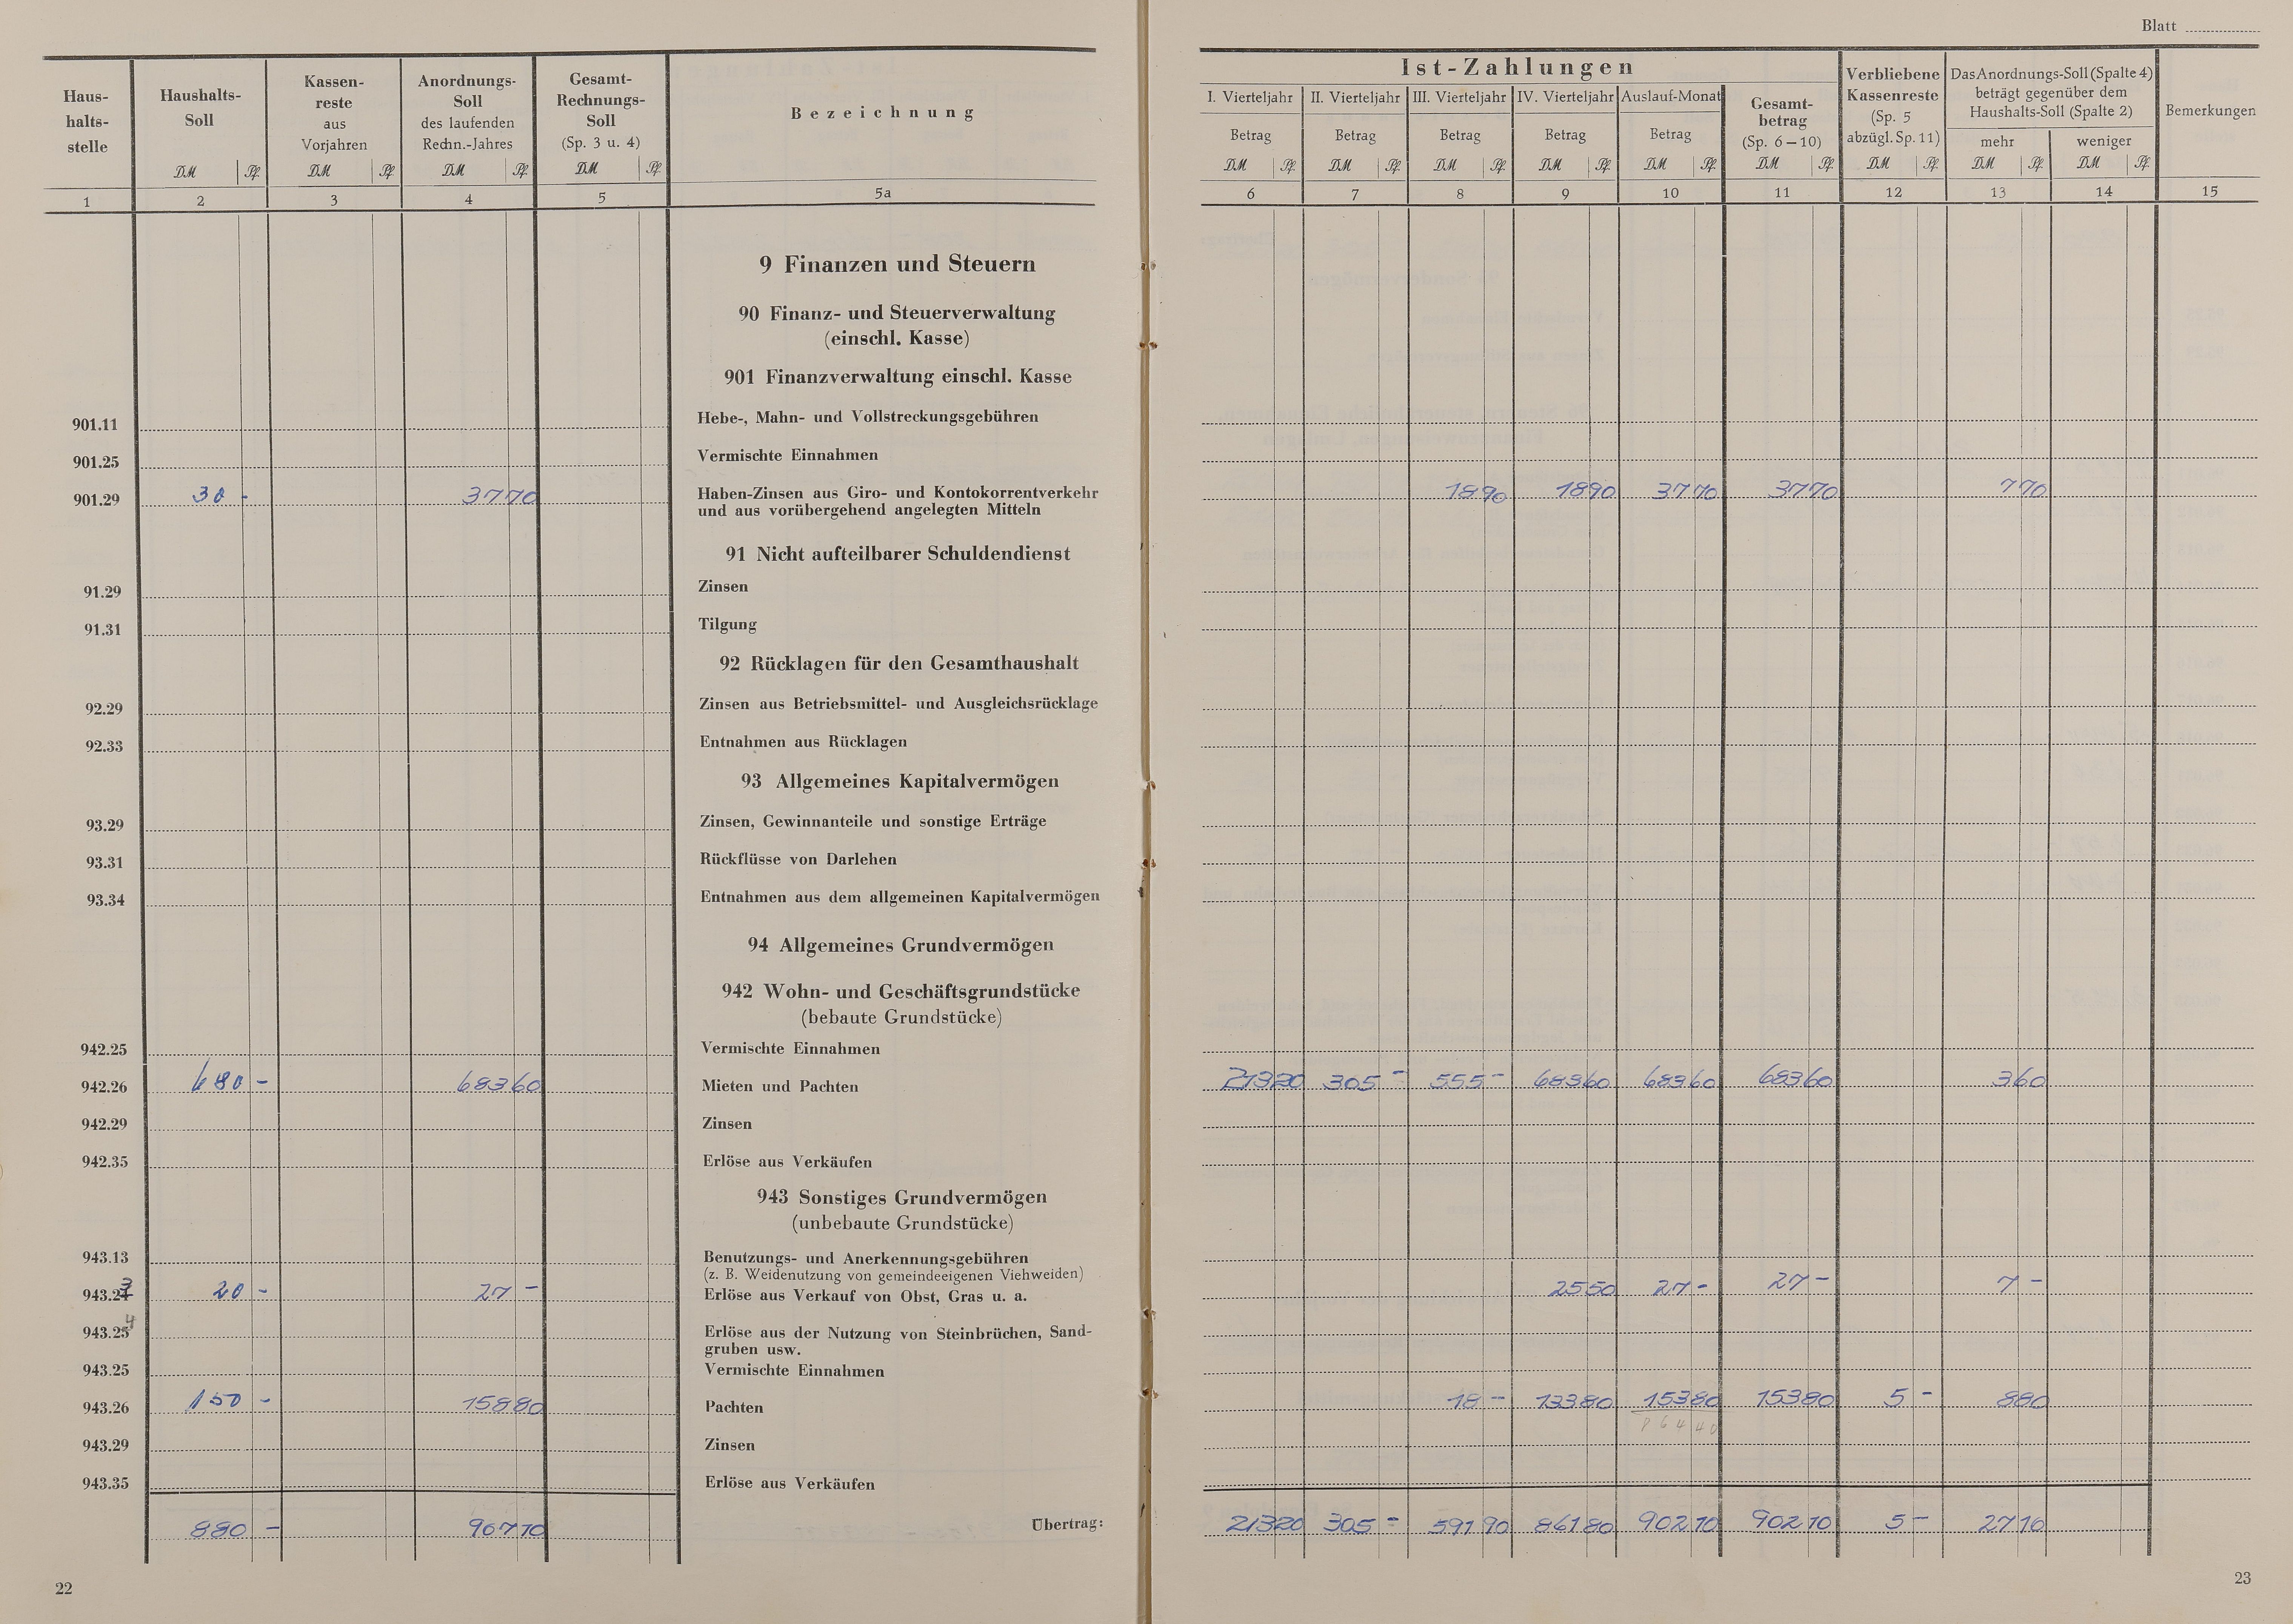 Blatt
Haus-
halts-
stelle
Haushalts-
Soll
DM Pf.
Kassen-
reste
aus
Vorjahren
DM Pf.
Anordnungs-
Soll
des laufenden
Rechn.-Jahres
DM Pf.
Gesamt-
Rechnungs-
Soll
(Sp. 3 u. 4)
DM Pf.
Bezeichnung
1 2 3 4 5 5a
Ist-Zahlungen
I. Vierteljahr II. Vierteljahr III. Vierteljahr IV. Vierteljahr Auslauf-Monat
Betrag Betrag Betrag Betrag Betrag
DM Pf. DM Pf. DM Pf. DM Pf. DM Pf.
Gesamt-
betrag
(Sp. 6–10)
DM Pf.
Verbliebene
Kassenreste
(Sp. 5
abzügl. Sp. 11)
DM Pf.
Das Anordnungs-Soll (Spalte 4)
beträgt gegenüber dem
Haushalts-Soll (Spalte 2)
mehr weniger
DM Pf. DM Pf.
Bemerkungen
6 7 8 9 10 11 12 13 14 15
9 Finanzen und Steuern
90 Finanz- und Steuerverwaltung
(einschl. Kasse)
901 Finanzverwaltung einschl. Kasse
901.11 Hebe-, Mahn- und Vollstreckungsgebühren
901.25 Vermischte Einnahmen
901.29 30 - 37 70 Haben-Zinsen aus Giro- und Kontokorrentverkehr 18 90 18 90 37 70 37 70 7 70
und aus vorübergehend angelegten Mitteln
91 Nicht aufteilbarer Schuldendienst
91.29 Zinsen
91.31 Tilgung
92 Rücklagen für den Gesamthaushalt
92.29 Zinsen aus Betriebsmittel- und Ausgleichsrücklage
92.33 Entnahmen aus Rücklagen
93 Allgemeines Kapitalvermögen
93.29 Zinsen, Gewinnanteile und sonstige Erträge
93.31 Rückflüsse von Darlehen
93.34 Entnahmen aus dem allgemeinen Kapitalvermögen
94 Allgemeines Grundvermögen
942 Wohn- und Geschäftsgrundstücke
(bebaute Grundstücke)
942.25 Vermischte Einnahmen
942.26 680 - 683 60 Mieten und Pachten 213 20 305 - 555 - 683 60 683 60 683 60 3 60
942.29 Zinsen
942.35 Erlöse aus Verkäufen
943 Sonstiges Grundvermögen
(unbebaute Grundstücke)
943.13 Benutzungs- und Anerkennungsgebühren
(z. B. Weidenutzung von gemeindeeigenen Viehweiden)
943.23 20 - 27 - Erlöse aus Verkauf von Obst, Gras u. a. 25 50 27 - 27 - 7 -
943.25 4 Erlöse aus der Nutzung von Steinbrüchen, Sand-
gruben usw.
943.25 Vermischte Einnahmen
943.26 150 - 158 80 Pachten 18 - 133 80 153 80 153 80 5 - 8 80
864 40
943.29 Zinsen
943.35 Erlöse aus Verkäufen
880 - 907 10 Übertrag: 213 20 305 - 591 90 861 80 902 10 902 10 5 - 27 10
22
23